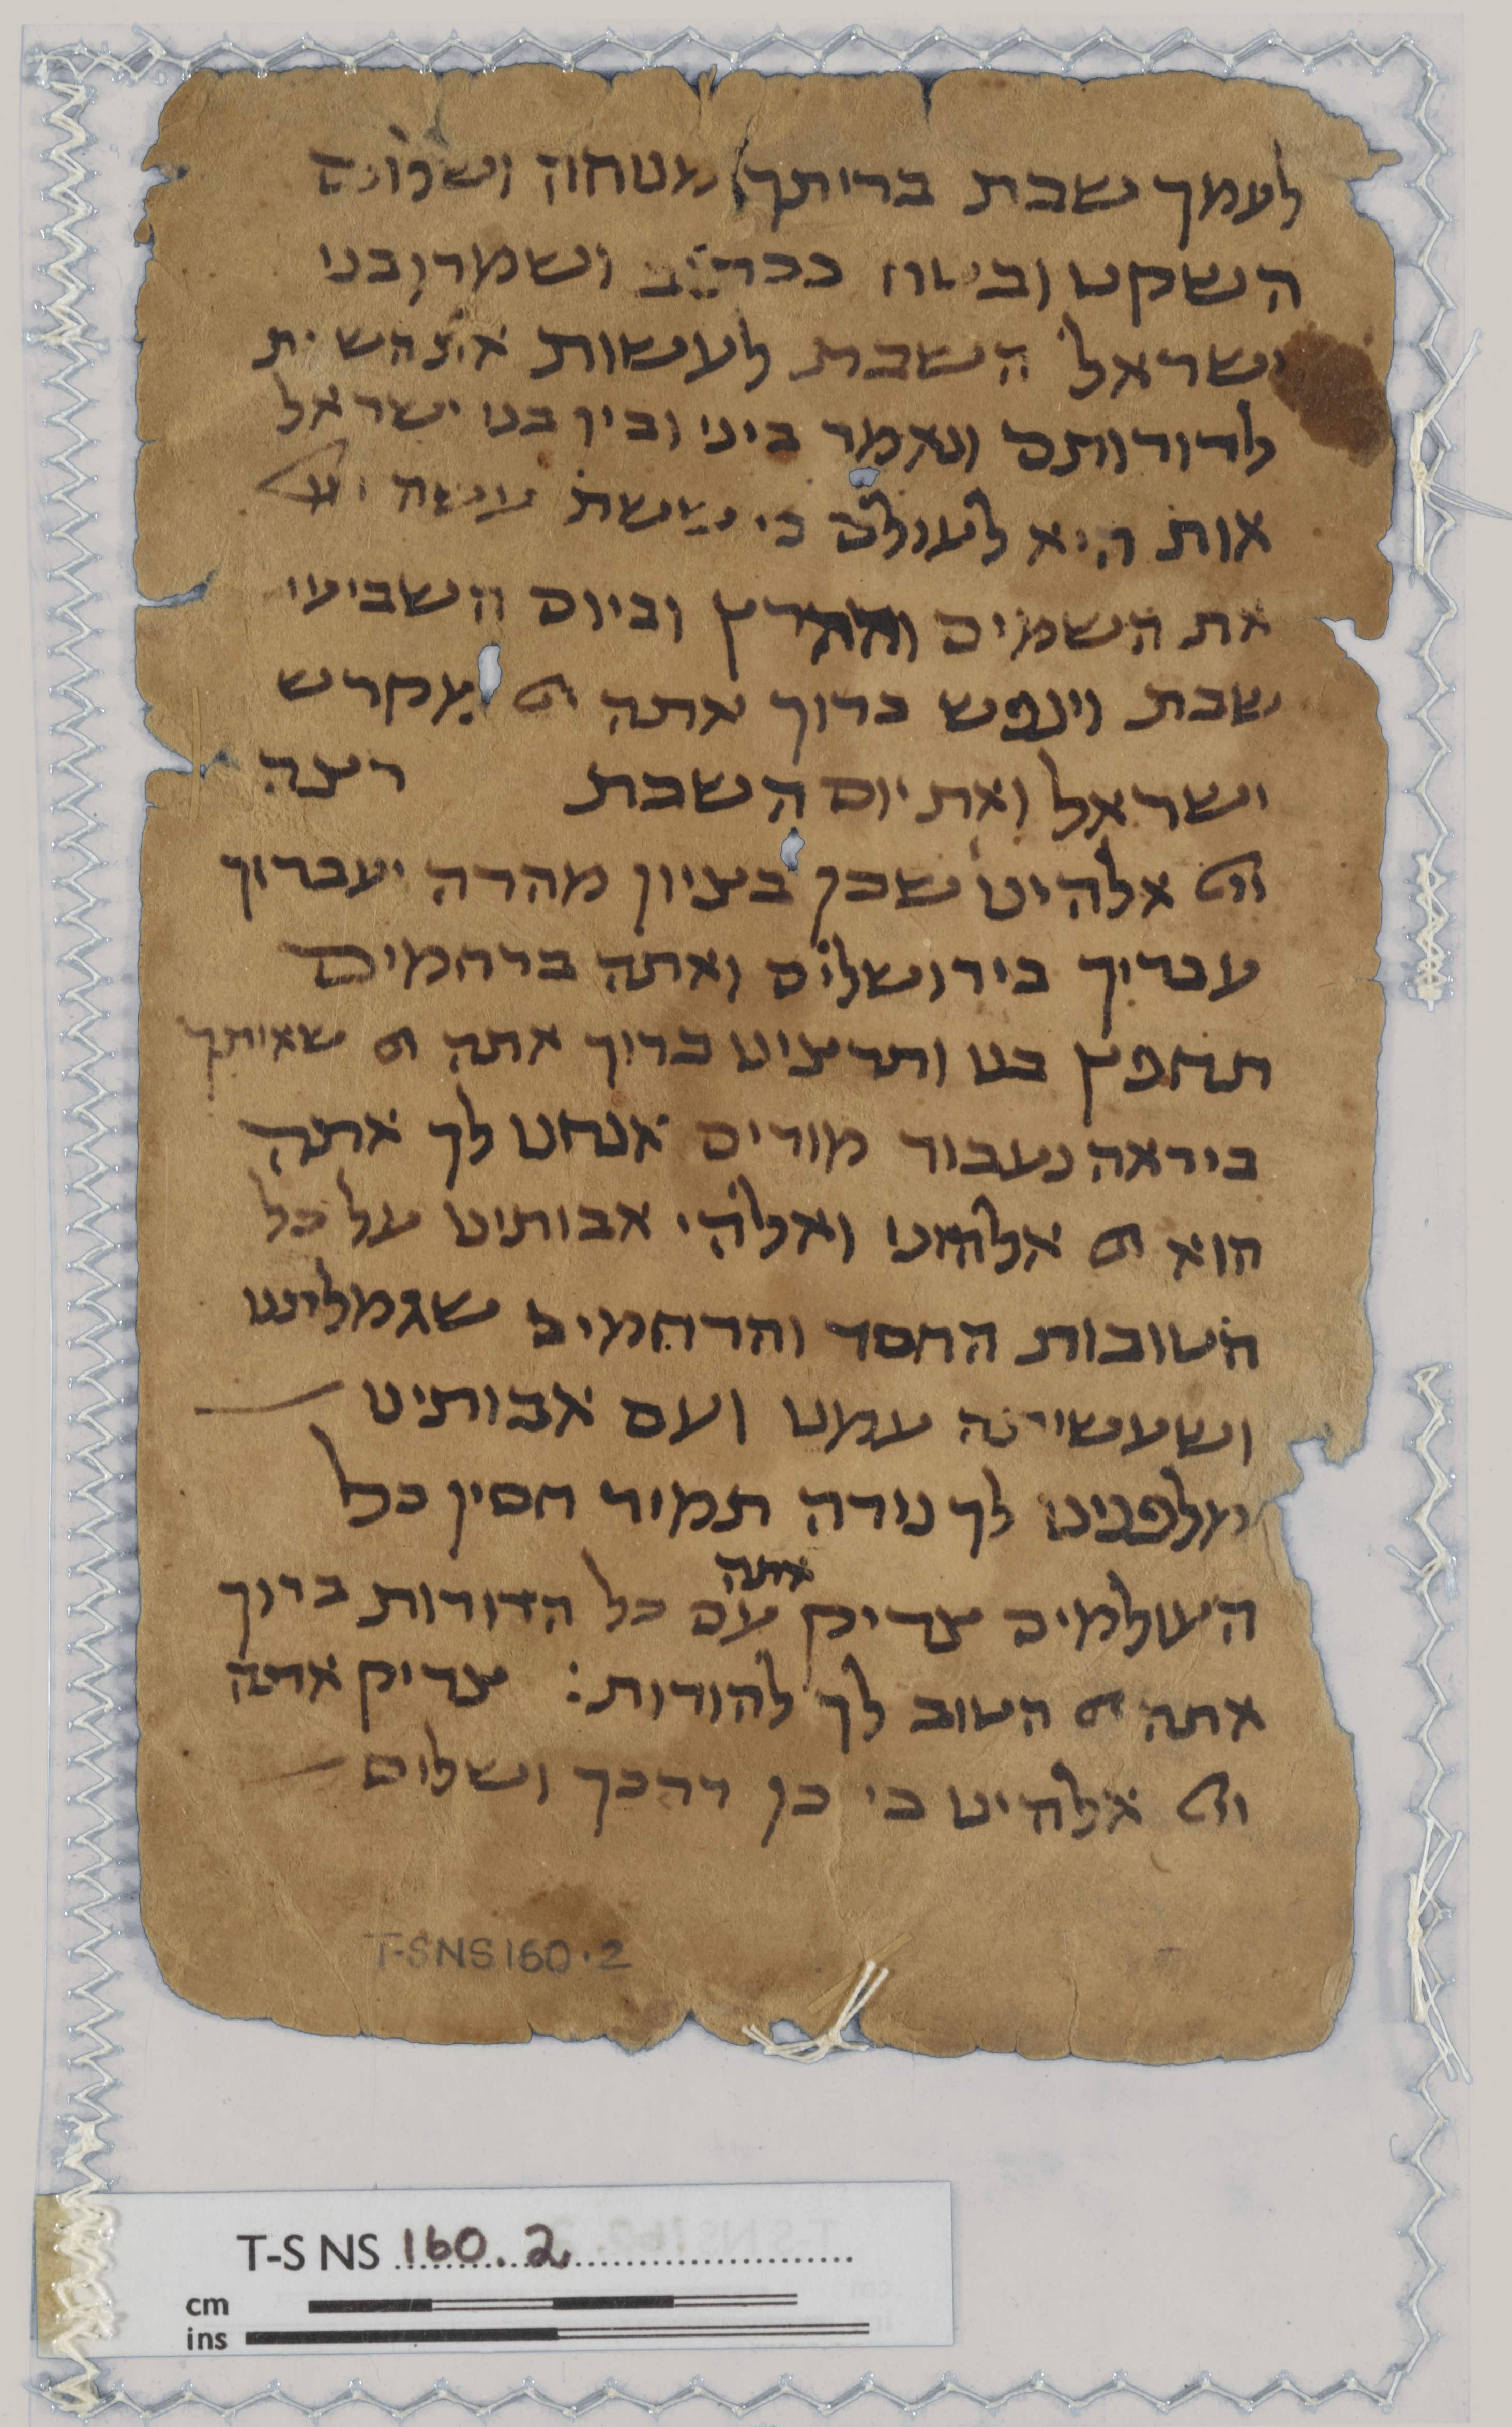 לעמך שבת בריתך מנוחה ושלוה
השקט ובטח ככתוב ושמרו בני
ישראל השבת לעשות את הש׳ת
לדורותם ונאמר ביני ובין בני ישראל
אות היא לעולם כי ששת עשה
את השמים והארץ וביום השביעי
שבת וינפש ברוך אתה מקדש
ישראל ואת יום השבת רצה
אלהינו שכן בציון מהרה יעבדוך
עבדיך בירושלים ואתה ברחמים
תחפץ בנו ותרצינו ברוך אתה שאותך
ביראה נעבוד מודים אנחנו לך אתה
הוא אלהינו ואלהי אבותינו על כל
הטובות החסד והרחמים שגמלתנו
ושעשיתה עמנו ועם אבותינו
מלפנינו לך נודה תמיד חסין כל
העולמים צדיק אתה עם כל הדורות ברוך
אתה הטוב לך להודות: צדיק אתה
אלהינו כי כן דרכך ושלום
T-S NS 160.2
T-S NS 160.2
cm
ins